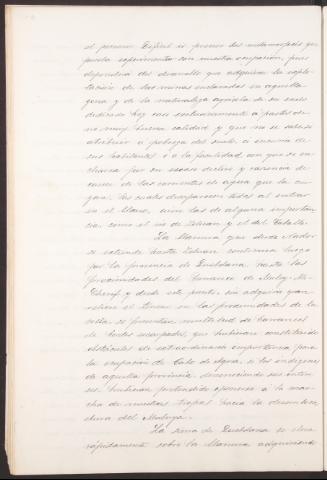 el primero. Difícil es prever las metamorfosis que
pueda experimentar con nuestra ocupación, pues
dependerá del desarrollo que adquiera la explo-
tación de las minas enclavadas en aquella
zona y de la naturaleza agrícola de su suelo
dedicado hoy casi exclusivamente á pastos de
no muy buena calidad y que no se sabe si
atribuir a pobreza del suelo, a incuria de
sus habitantes ó a la facilidad con que se en-
charca por su escaso declive y carencia de
cauce de las corrientes de agua que la cru-
zan, las cuales desaparecen todas al entrar
en el llano, aun las de alguna importan-
cia como el río de Zeluan y el del Caballo.
La llanura que desde Nador
se extiende hasta Zeluan continua luego
por la provincia de Quebdana hasta las
proximidades del
y desde este punto, sin adquirir gran
relieve el terreno en las proximidades de la
costa se presentan multitud de barrancos
de bordes escarpados, que hubieran constituido
obstáculos de extraordinaria importancia para
la ocupación de Cabo de Agua, si los indígenas
de aquella provincia, desconociendo sus intere-
ses, hubieran pretendido oponerse á la mar-
cha de nuestras tropas hacia la desembo-
cadura del Muluya.
La sierra de Quebdana se eleva
rápidamente sobre la llanura adquiriendo